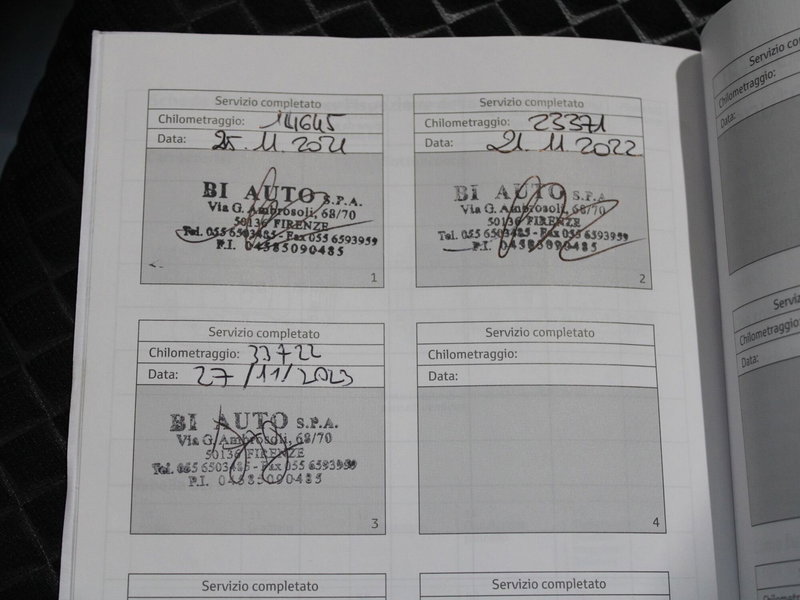 Servizio completato
Chilometraggio: 14645
Data: 25.11.2021
BI AUTO S.P.A.
Via G. Ambrosoli, 68/70
50136 FIRENZE
Tel. 055 6503485 - Fax 055 6593959
P.I. 04585090485
1
Servizio completato
Chilometraggio: 23371
Data: 21.11.2022
BI AUTO S.P.A.
Via G. Ambrosoli, 68/70
50136 FIRENZE
Tel. 055 6503485 - Fax 055 6593959
P.I. 04585090485
2
Servizio completato
Chilometraggio: 33722
Data: 27/11/2023
BI AUTO S.P.A.
Via G. Ambrosoli, 68/70
50136 FIRENZE
Tel. 055 6503485 - Fax 055 6593959
P.I. 04585090485
3
Servizio completato
Chilometraggio:
Data:
4
Servizio completato
Servizio completato
Servizio
Chilometraggio:
Data:
Servizio
Chilometraggio
Data:
Servizio
Chilometraggio: